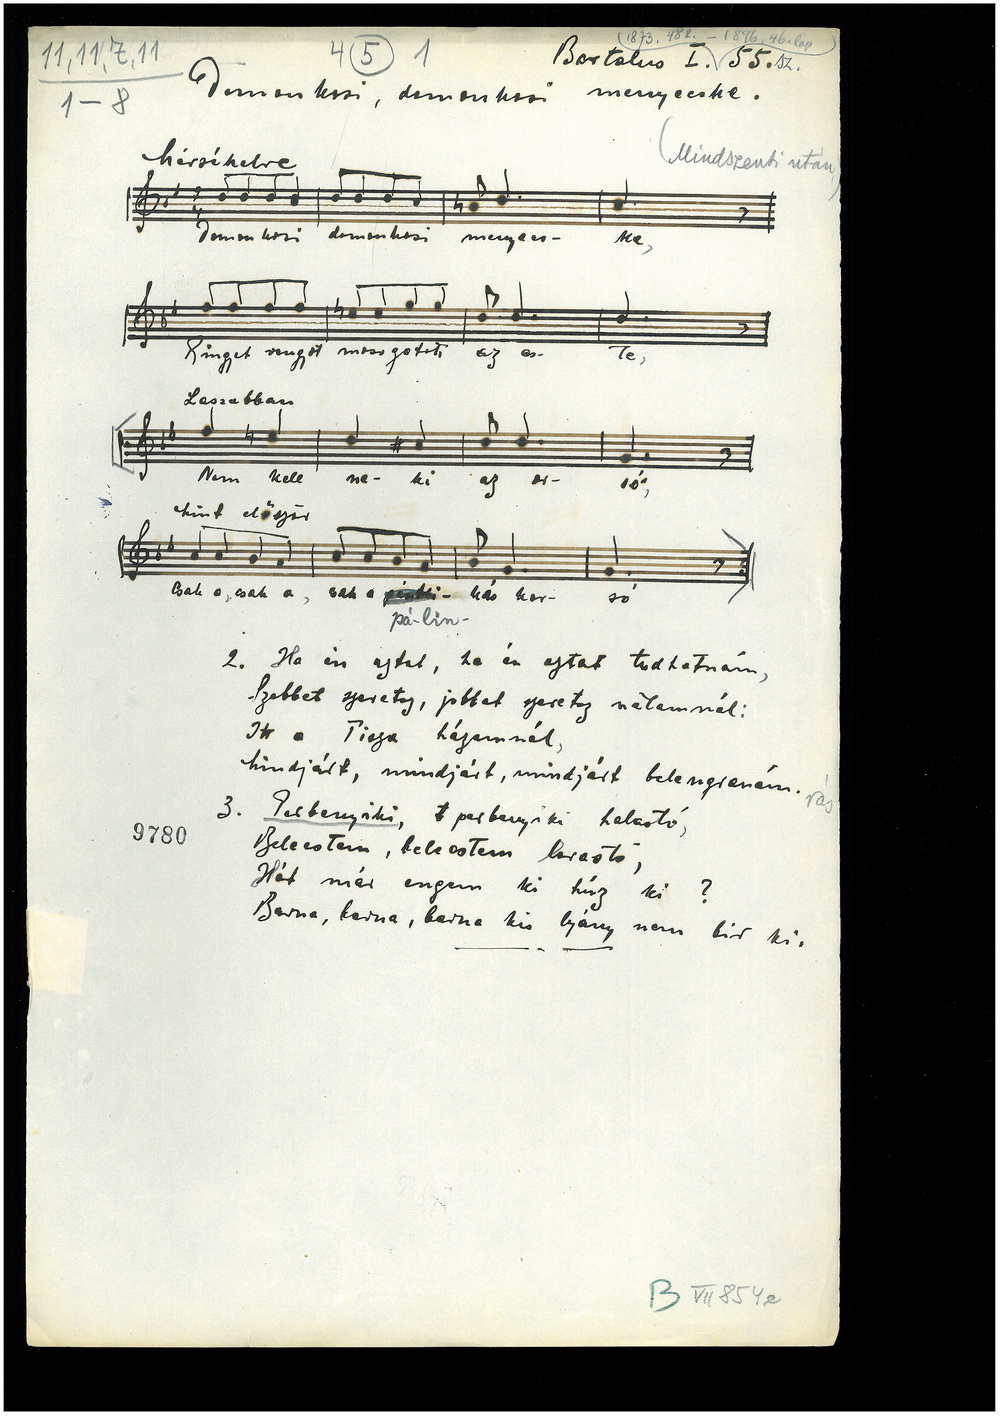 11, 11, 7, 11
1-8
4 (5) 1
(1873. 48 l. - 1896. 46. lap)
Bartalus I. 55. sz.
Domonkosi, domonkosi menyecske.
(Mindszenti után)
Mérsékelve
Domonkosi domonkosi menyecs- ke,
Ringyet rongyot mosogatott az es- te,
Lassabban
Nem kell ne- ki az or- só,
Mint először
Csak a, csak a, csak a kás kor- só
pá-lin-
2. Ha én aztat, ha én aztat tudhatnám,
Szebbet szeretsz, jobbat szeretsz nálamnál:
Itt a Tisza házamnál,
Mindjárt, mindjárt, mindjárt beleugranám.
3. Perbenyiki, perbenyiki halastó,
Beleestem, beleestem
Hát már engem ki húz ki ?
Barna, barna, barna kis lyány nem bir ki.
9780
B VII 854